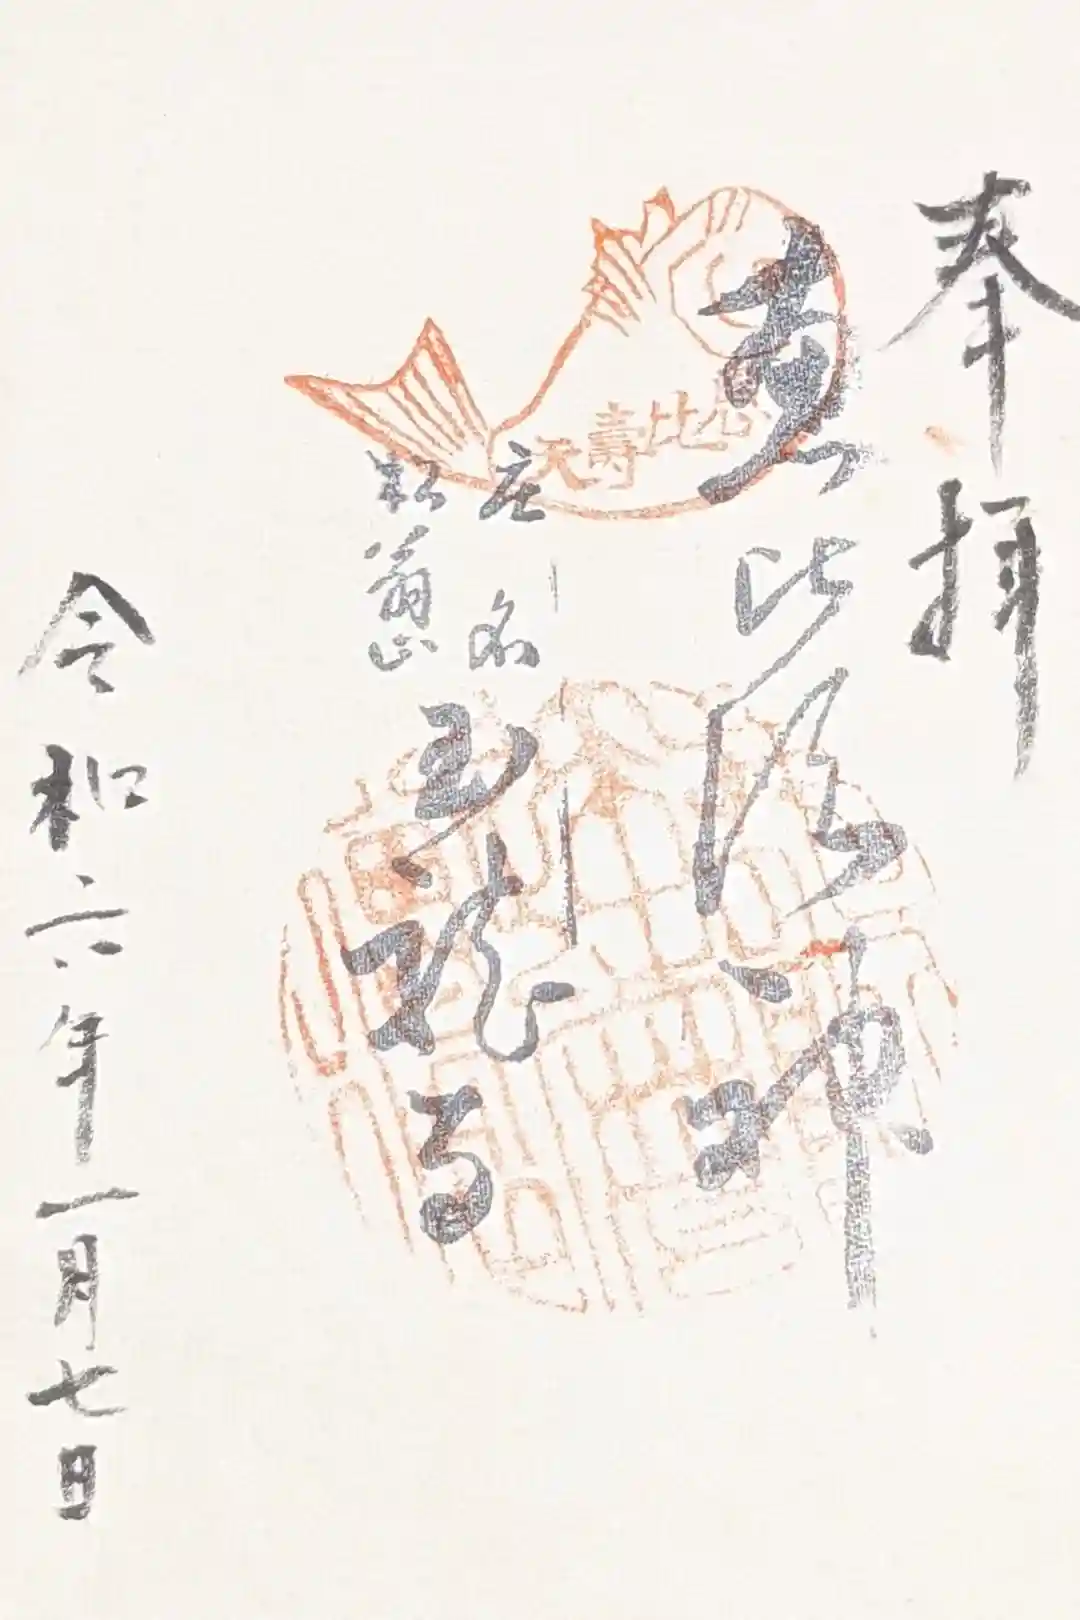 奉拝
恵比須神
恵比壽天
松翁山
玉龍寺
令和六年一月七日